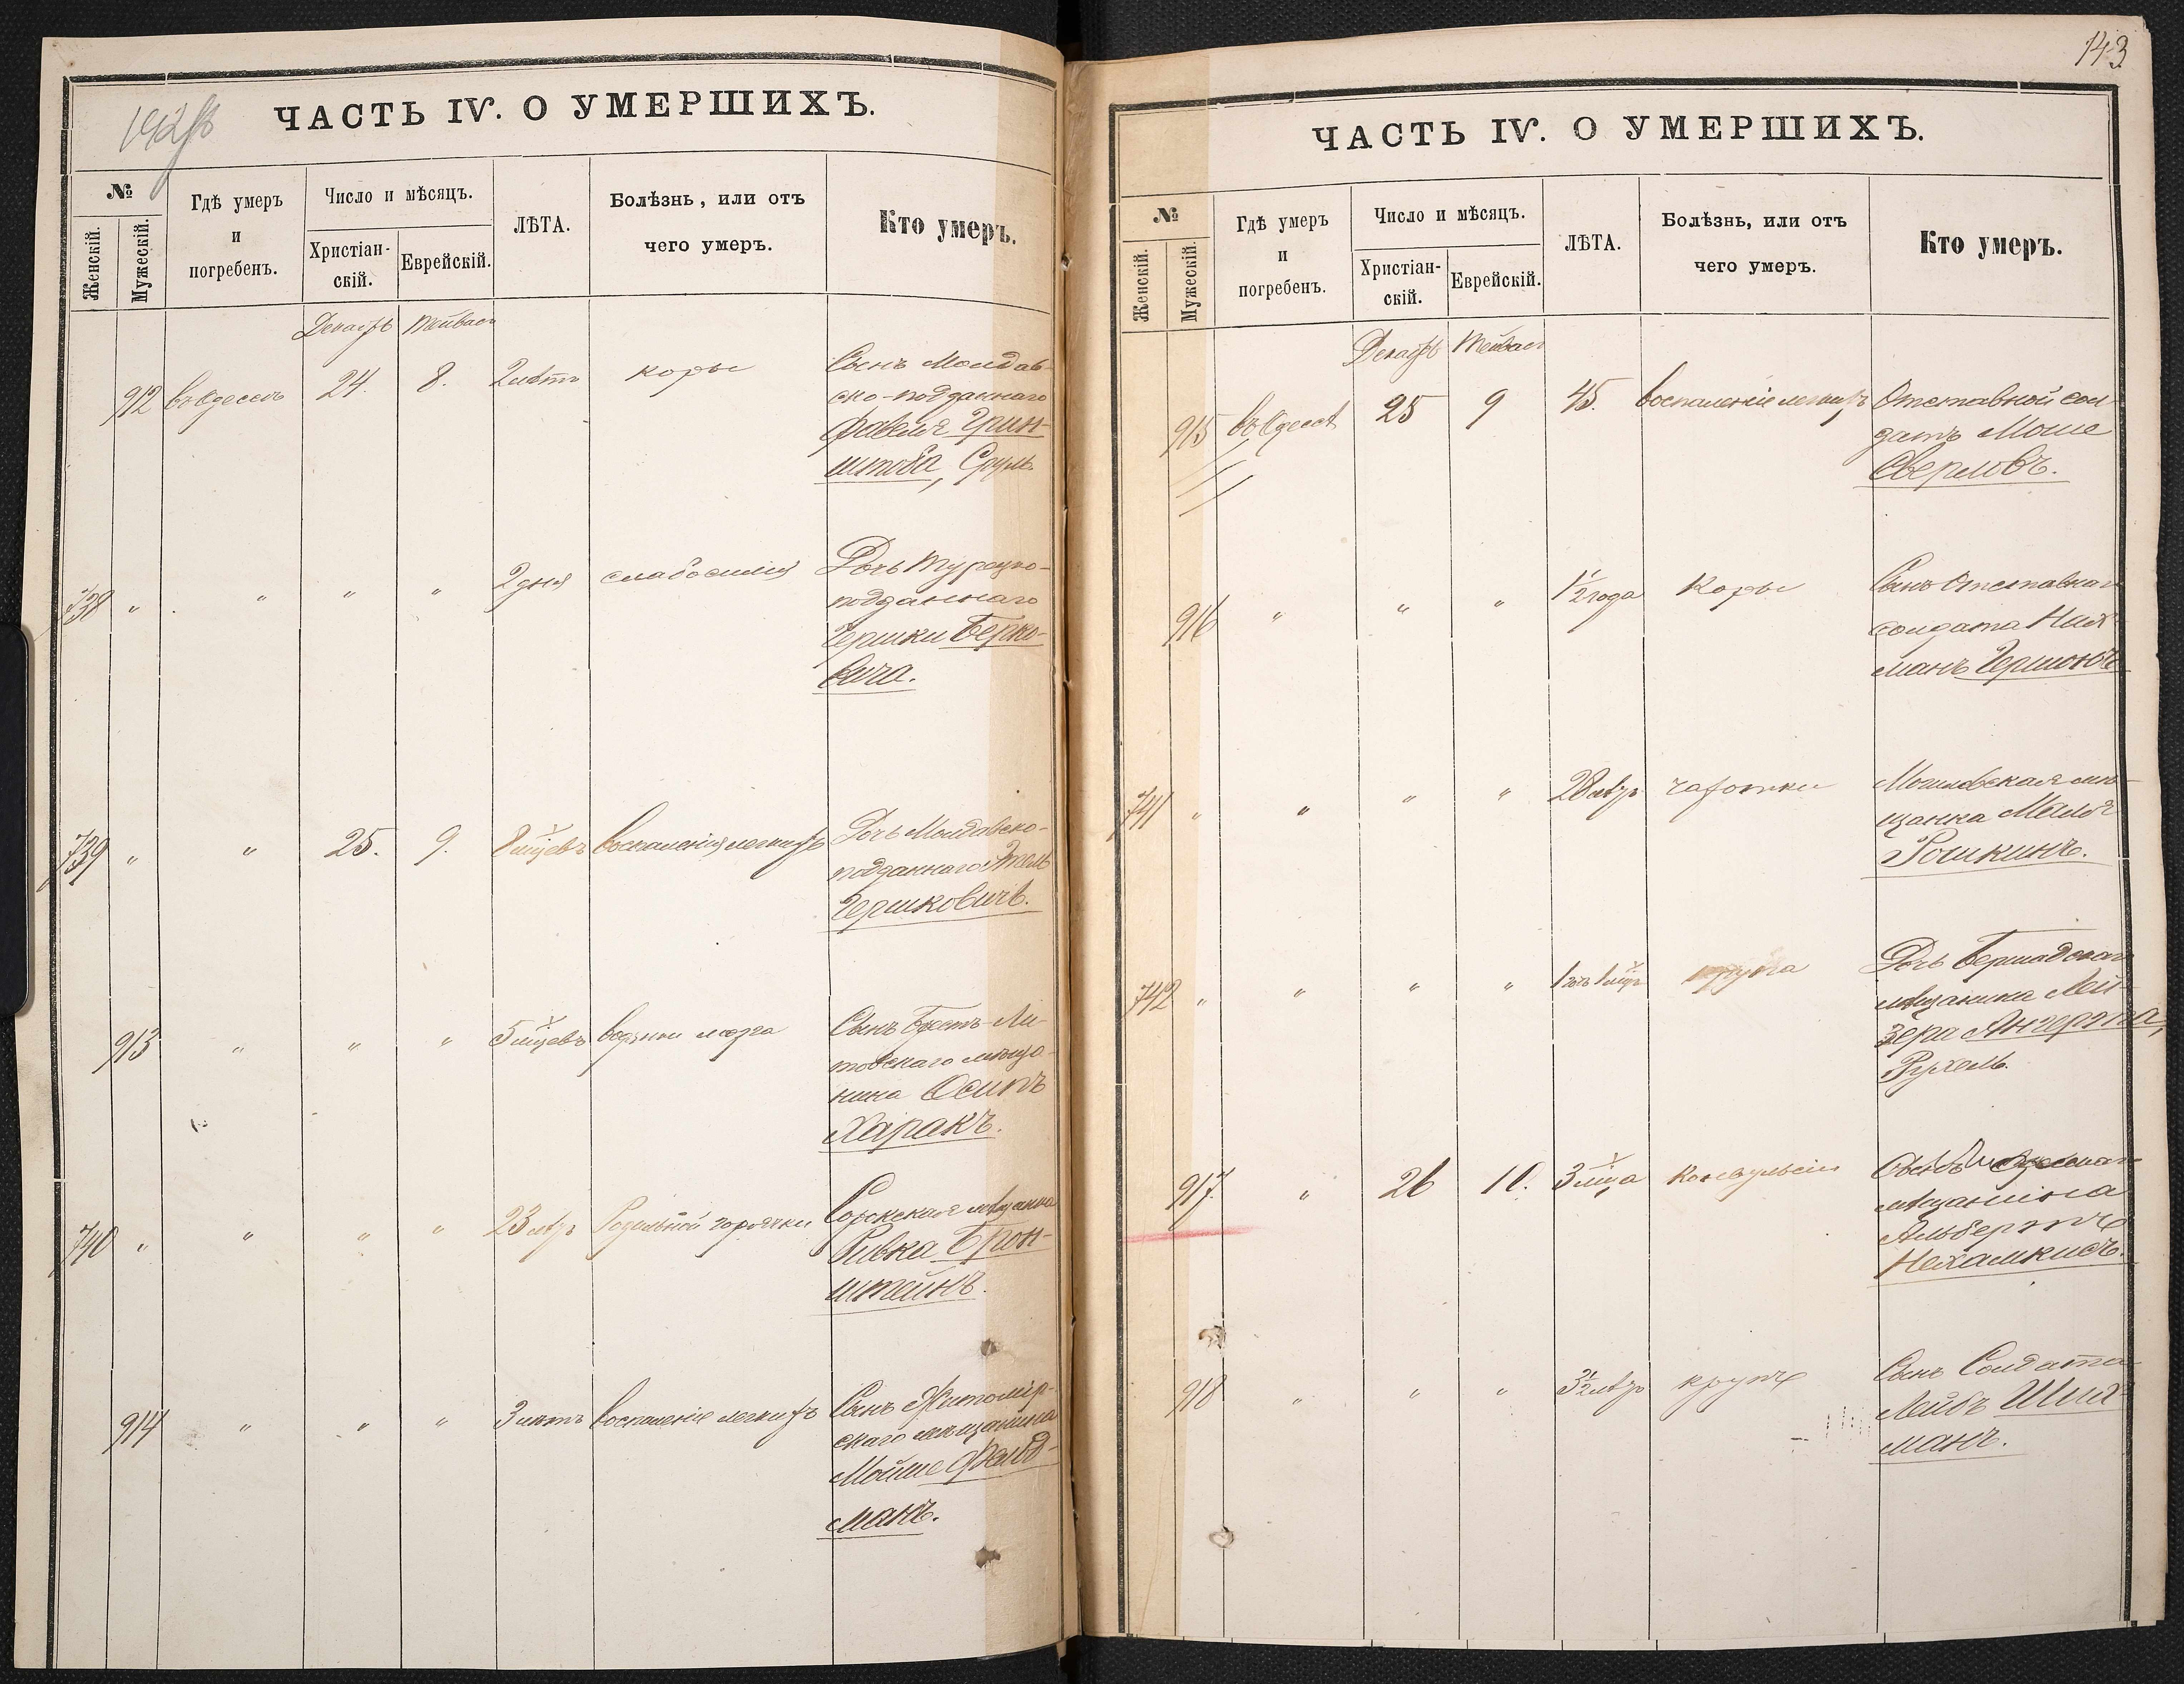 ЧАСТЬ IV. О УМЕРШИХЪ.
№
Женскій.
Мужескій.
Гдѣ умеръ
и
погребенъ.
Число и мѣсяцъ.
Христіан-
скій.
Еврейскій.
ЛѢТА.
Болѣзнь, или отъ
чего умеръ.
Кто умеръ.
Тейвас
912 24. 8. 2 лѣтъ коры Сынъ Молдав-
ско-подданнаго
Грин-
Сруль
738 „ „ „ „ 2 дня слабосилія Дочь Турецко-
подданнаго
Гершки Берко-
вича.
739 „ „ 25. 9. 8 мцевъ воспаленія легкихъ Дочь Молдавско-
подданнаго Этель
Гершковичъ.
913 „ „ „ 5 мцевъ водянки мозга Сынъ Брестъ-Ли-
товскаго мѣща-
нина Осипъ
Харакъ.
740 „ „ „ „ 23 лѣтъ Родильной горячки Сорокская мѣщанка
Ривка Брон-
штейнъ.
914 „ „ „ 3 лѣтъ воспаленіе легкихъ Сынъ Житомір-
скаго мѣщанина
Мойше Фельд-
манъ.
143
ЧАСТЬ IV. О УМЕРШИХЪ.
№
Женскій.
Мужескій.
Гдѣ умеръ
и
погребенъ.
Число и мѣсяцъ.
Христіан-
скій.
Еврейскій.
ЛѢТА.
Болѣзнь, или отъ
чего умеръ.
Кто умеръ.
Тейвас
915 въ Одессѣ 25 9 45. воспаленіе легкихъ Отставной сол-
датъ Моше
Сверловъ.
916 „ „ „ 1½ года Коры Сынъ Отставнаго
солдата Нах-
манъ Гершонъ
741 „ „ „ „ 28 лѣтъ чахотки Могилевская мѣ-
щанка Маля
Рошкинъ.
742 „ „ „ „ крупа Дочь Бершадскаго
мѣщанина Лей-
зера
Рухель.
917. „ 26 10. 3 мца Конвульсіи
мѣщанина
Альбертъ
Нехамкисъ.
918 „ „ „ 3½ лѣтъ крупъ Сынъ Солдата
Лейбъ
манъ.